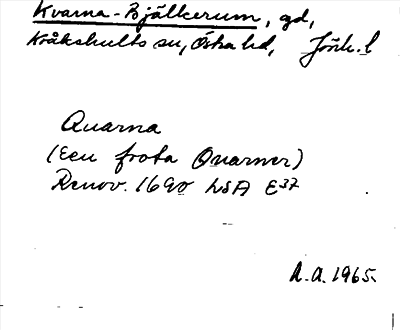 Kvarna-Bjälkerum, gd,
Kråkshults sn, Östra hd, Jönk. l
Quarna
(Een frota Quarner)
Renov. 1690 LSA E37
A.A. 1965.